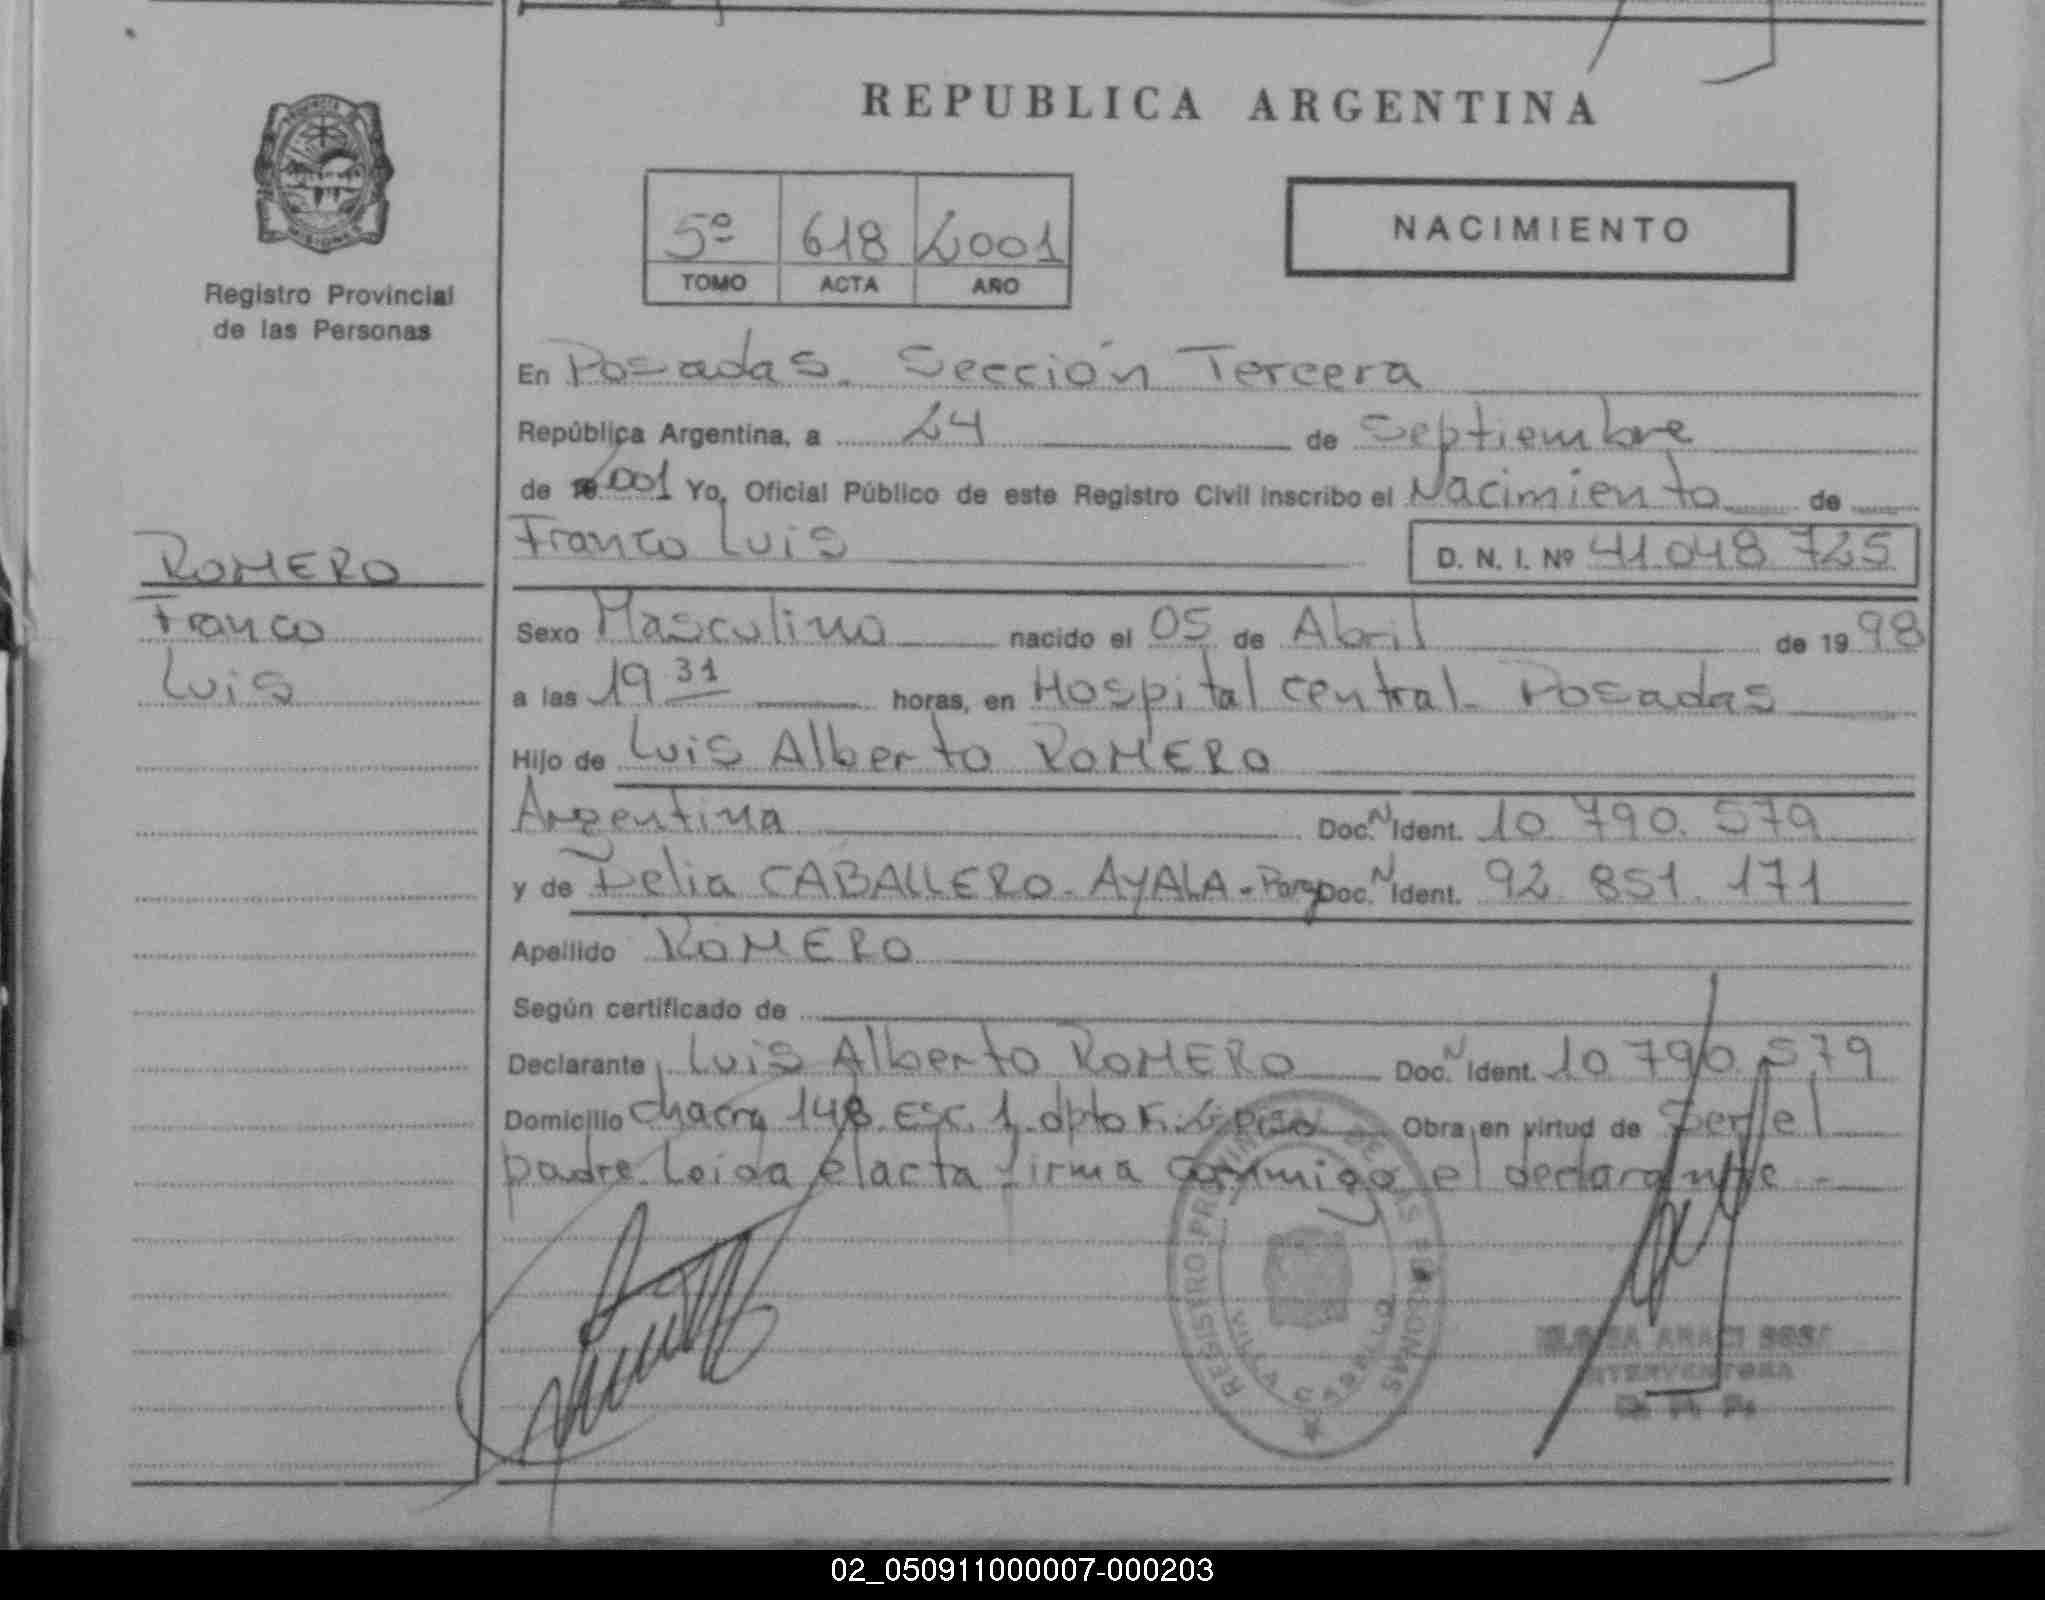 REPUBLICA ARGENTINA
PROVINCIA
MISIONES
Registro Provincial
de las Personas
5º 618 2001
TOMO ACTA AÑO
NACIMIENTO
En Posadas. Sección Tercera
República Argentina, a 24 de Septiembre
de 2001 Yo, Oficial Público de este Registro Civil inscribo el Nacimiento de
Franco Luis D. N. I. Nº 41.048.725
ROMERO
Franco
Luis
Sexo Masculino nacido el 05 de Abril de 1998
a las 19 31 horas, en Hospital central. Posadas
Hijo de Luis Alberto ROMERO
Argentina Doc. N Ident. 10.790.579
y de Delia CABALLERO - AYALA - Parag Doc. N Ident. 92.851.171
Apellido ROMERO
Según certificado de
Declarante Luis Alberto ROMERO Doc. N Ident. 10.790.579
Domicilio chacra 148. Esc. 1. dpto F. 2 piso Obra en virtud de Ser el
padre. Leida el acta firma conmigo el declarante -
REGISTRO PROVINCIAL DE LAS PERSONAS
ARACI SOSA
INTERVENTORA
02_050911000007-000203